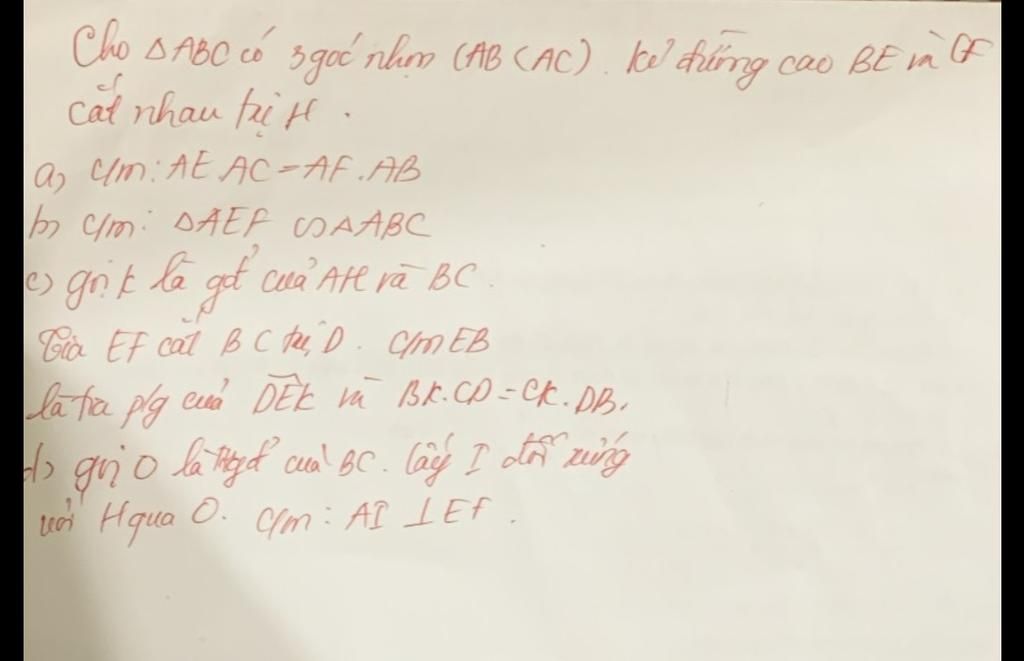 Cho △ABC có 3 góc nhọn (AB < AC). Kẻ đường cao BE và CF
cắt nhau tại H.
a) c/m: AE.AC = AF.AB
b) c/m: △AEF ∽ △ABC
c) gọi K là gđ của AH và BC.
Tia EF cắt BC tại D. c/m EB
là tia p/g của DÊK và BK.CD = CK.DB.
d) gọi O là trgđ của BC. Lấy I đối xứng
với H qua O. c/m: AI ⊥ EF.